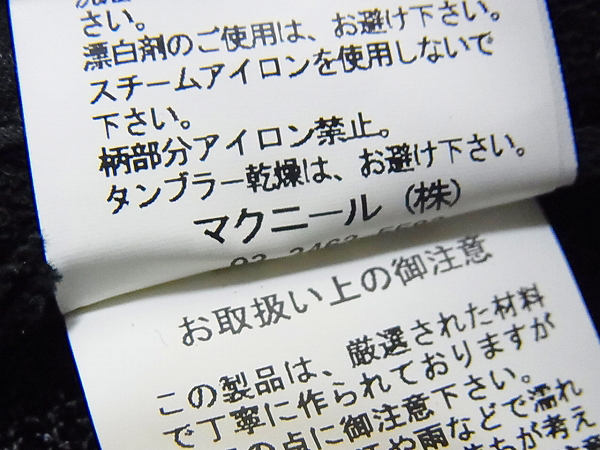 さい。
漂白剤のご使用は、お避け下さい。
スチームアイロンを使用しないで
下さい。
柄部分アイロン禁止。
タンブラー乾燥は、お避け下さい。
マクニール（株）
お取扱い上の御注意
この製品は、厳選された材料
で丁寧に作られておりますが
の点に御注意下さい。
や雨などで濡れ
ちが考え